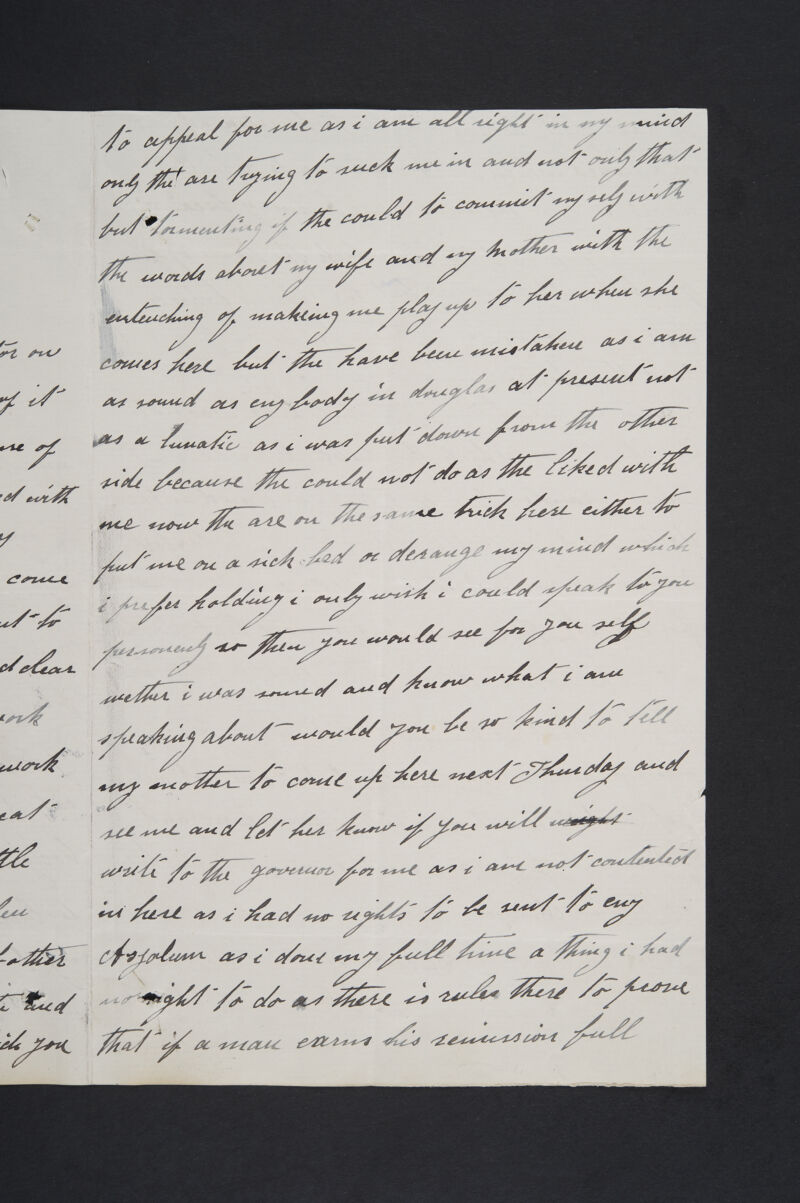 to appeal for me as i am all right in my mind
only the are trying to suck me in and not only that
but tormenting if the could to commit my self with
the words about my wife and my Mother with the
entenching of makeing me play up to her when she
comes here but the have been mistaken as i am
as sound as eny body in douglas at present not
as a lunatic as i was put down from the other
side because the could not do as the liked with
me now the are on the same trick here either to
put me on a sick bed or derange my mind which
i prefer holding i only wish i could speak to you
personerly so then you would see for you self
wether i was sound and know what i am
speaking about would you be so kind to till
my mother to come up here next Thursday and
see me and let her know if you will wright
write to the governor for me as i am not contented
in here as i had no rights to be sent to eny
Asyolum as i done my full time a thing i had
no right to do as there is rules there to prove
that if a man earns his remission full
tor on
of it
me of
ed with
y
come
ut to
d clear
work
work
eat
ttle
other
and
ick you